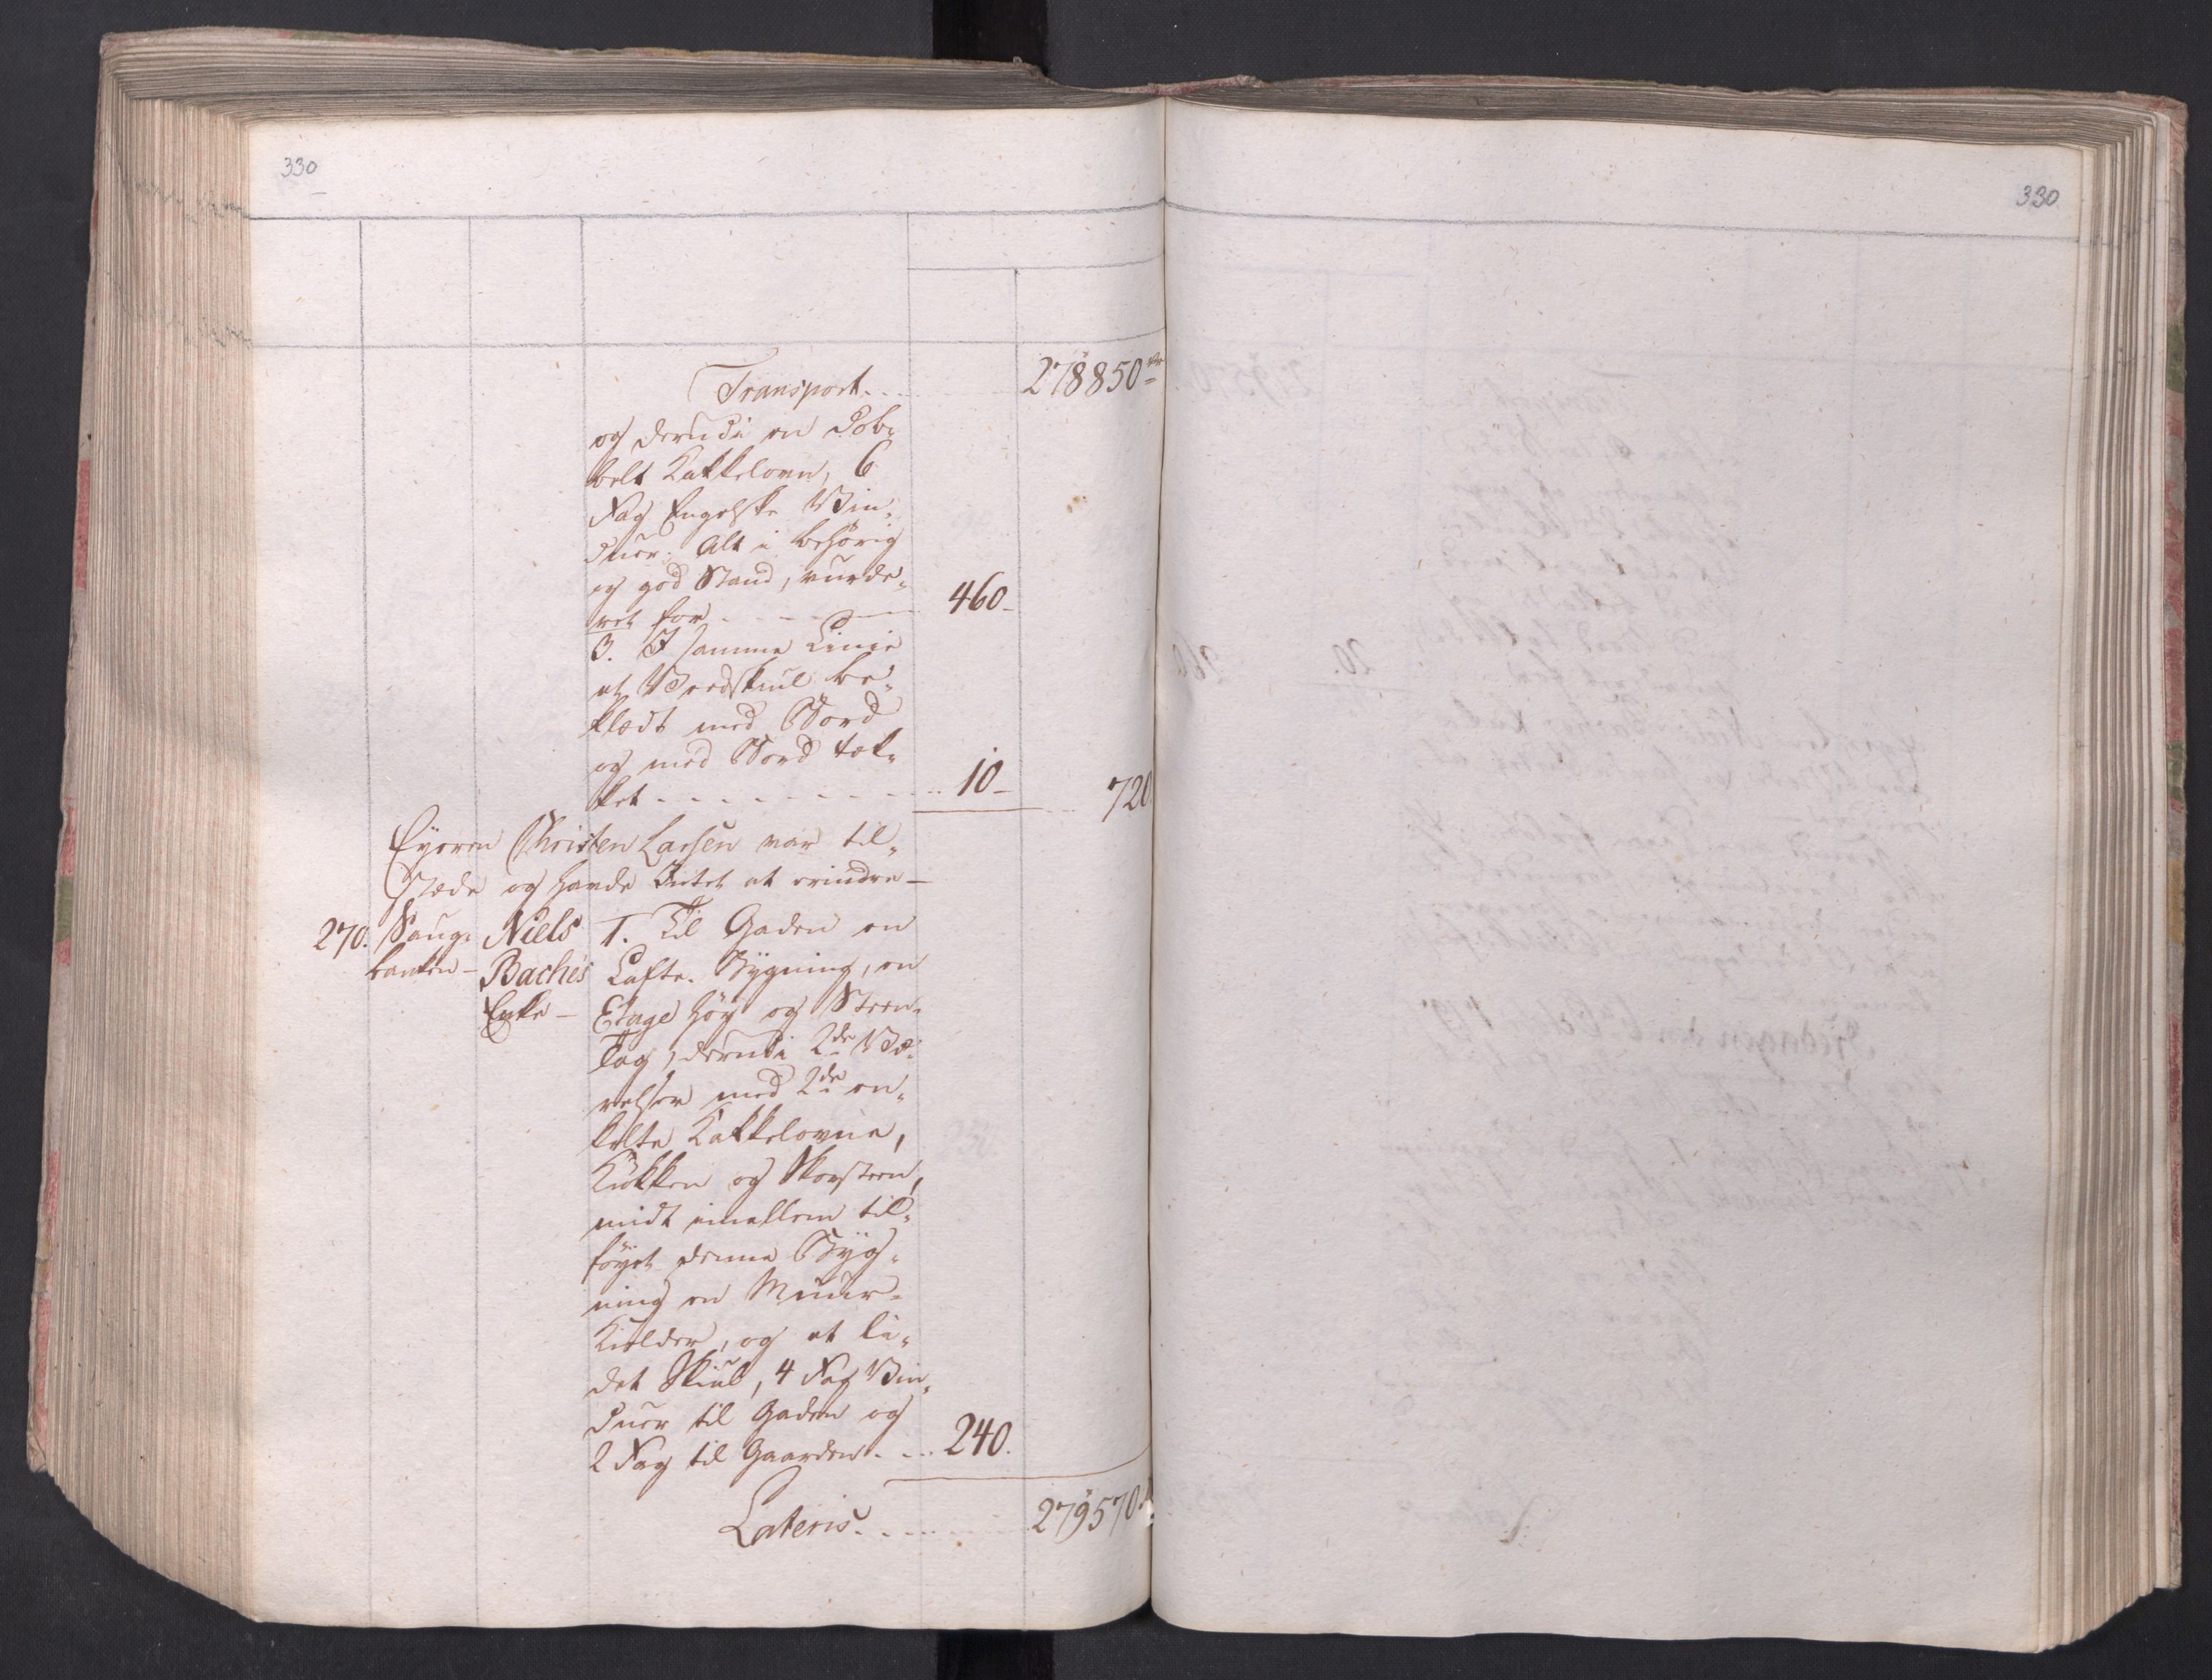 330
330
Transport. . . 278850 rdr
og derudi en dob-
belt Kakkelovn, 6
Fag Engelske Vin-
duer. Alt i behörig
og god Stand, vurde-
ret for - - - - 460-
3. I samme Linie
et Vedskiul be-
klædt med Bord
og med Bord tæk-
ket - - - - - - - 10- 720.
Eyeren Christen Larsen var til-
stæde og havde Intet at erindre-
270. Saug- Niels 1. Til Gaden en
banken- Baches Lafte-Bygning, en
Enke- Etage höy og Steen-
Tag, derudi 2de Væ-
relser med 2de en-
kelte Kakkelovne,
Kiökken og Skorsteen,
midt imellem til-
föyet denne Byg-
ning en Muur-
Kielder, og et li-
det Skiul, 4 Fag Vin-
duer til Gaden og
2 Fag til Gaarden. - . . 240.
Lateris. . . . . 279570